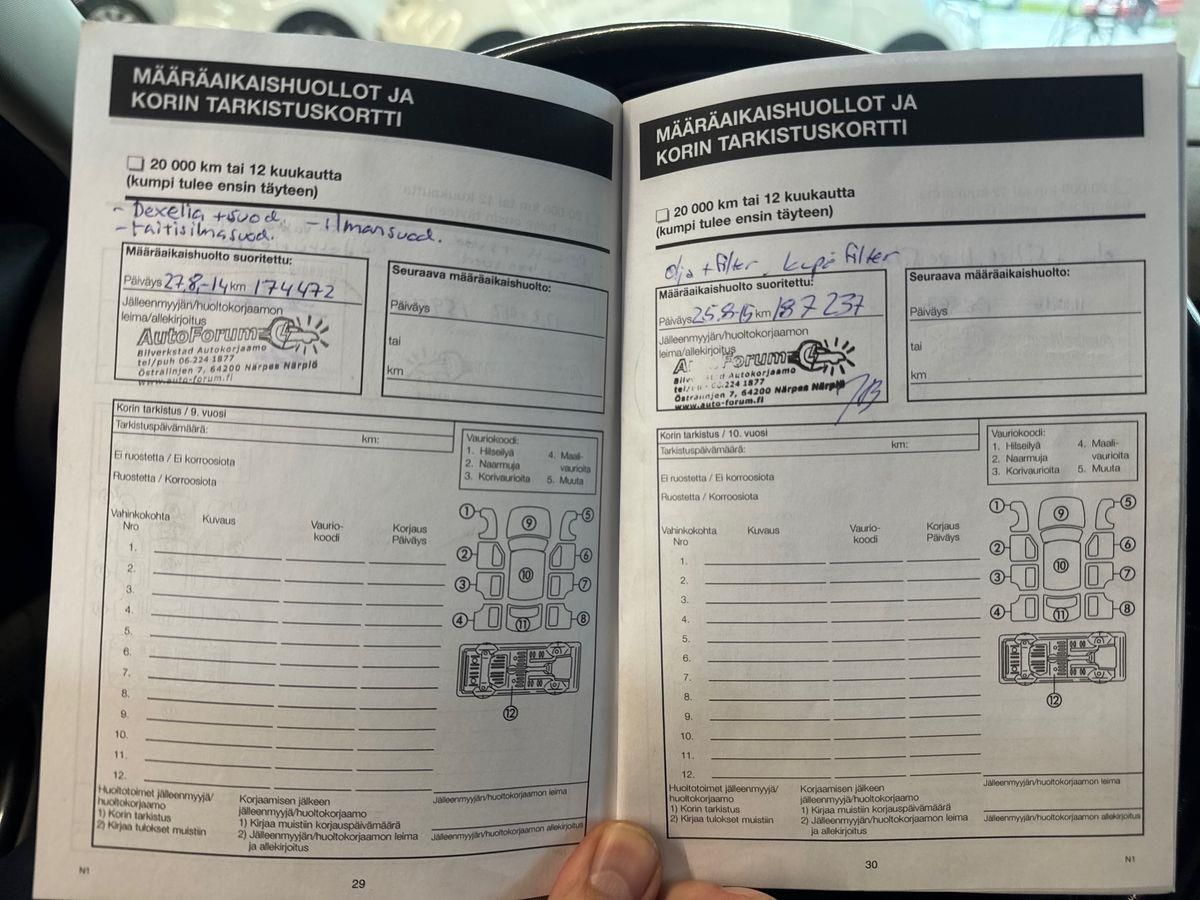 MÄÄRÄAIKAISHUOLLOT JA
KORIN TARKISTUSKORTTI
20 000 km tai 12 kuukautta
(kumpi tulee ensin täyteen)
+suod. - ilmansuod.
- raitisilmasuod.
Määräaikaishuolto suoritettu:
Päiväys 27.8.-14 km 174472
Jälleenmyyjän/huoltokorjaamon
leima/allekirjoitus
AutoForum
Bilverkstad Autokorjaamo
tel/puh 06.224 1877
Östralinjen 7, 64200 Närpes Närpiö
www.auto-forum.fi
Seuraava määräaikaishuolto:
Päiväys
tai
km
Korin tarkistus / 9. vuosi
Tarkistuspäivämäärä: km:
Ei ruostetta / Ei korroosiota
Ruostetta / Korroosiota
Vauriokoodi:
1. Hilseilyä 4. Maali-
2. Naarmuja vaurioita
3. Korivaurioita 5. Muuta
Vahinkokohta Kuvaus Vaurio- Korjaus
Nro koodi Päiväys
1.
2.
3.
4.
5.
6.
7.
8.
9.
10.
11.
12.
1 9 5
2 6
10
3 7
4 11 8
12
Huoltotoimet jälleenmyyjä/
huoltokorjaamo
1) Korin tarkistus
2) Kirjaa tulokset muistiin
Korjaamisen jälkeen
jälleenmyyjä/huoltokorjaamo
1) Kirjaa muistiin korjauspäivämäärä
2) Jälleenmyyjän/huoltokorjaamon leima
ja allekirjoitus
Jälleenmyyjän/huoltokorjaamon leima
Jälleenmyyjän/huoltokorjaamon allekirjoitus
N1
29
MÄÄRÄAIKAISHUOLLOT JA
KORIN TARKISTUSKORTTI
20 000 km tai 12 kuukautta
(kumpi tulee ensin täyteen)
olja + filter, kupé filter
Määräaikaishuolto suoritettu:
Päiväys 25.8-15 km 187237
Jälleenmyyjän/huoltokorjaamon
leima/allekirjoitus
Forum
Autokorjaamo
224 1877
Östralinjen 7, 64200 Närpes Närpiö
www.auto-forum.fi
Seuraava määräaikaishuolto:
Päiväys
tai
km
Korin tarkistus / 10. vuosi
Tarkistuspäivämäärä: km:
Ei ruostetta / Ei korroosiota
Ruostetta / Korroosiota
Vauriokoodi:
1. Hilseilyä 4. Maali-
2. Naarmuja vaurioita
3. Korivaurioita 5. Muuta
Vahinkokohta Kuvaus Vaurio- Korjaus
Nro koodi Päiväys
1.
2.
3.
4.
5.
6.
7.
8.
9.
10.
11.
12.
1 9 5
2 6
10
3 7
4 11 8
12
Huoltotoimet jälleenmyyjä/
huoltokorjaamo
1) Korin tarkistus
2) Kirjaa tulokset muistiin
Korjaamisen jälkeen
jälleenmyyjä/huoltokorjaamo
1) Kirjaa muistiin korjauspäivämäärä
2) Jälleenmyyjän/huoltokorjaamon leima
ja allekirjoitus
Jälleenmyyjän/huoltokorjaamon leima
Jälleenmyyjän/huoltokorjaamon allekirjoitus
30
N1